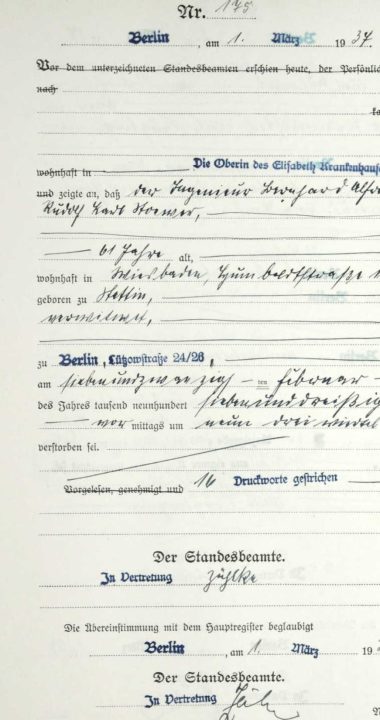 Nr. 175
Berlin, am 1. März 1937.
Vor dem unterzeichneten Standesbeamten erschien heute, der Persönlic
nach
wohnhaft in Die Oberin des Elisabeth Krankenhaus
und zeigte an, daß der Ingenieur Bernhard Alfre
Rudolf Karl Stoewer,
61 Jahre alt,
wohnhaft in Wiesbaden, Humboldtstraße
geboren zu Stettin,
verwitwet,
zu Berlin, Lützowstraße 24/26,
am siebenundzwanzig ten Februar
des Jahres tausend neunhundert siebenunddreißig
vor mittags um neun drei viertel
verstorben sei.
Vorgelesen, genehmigt und 16 Druckworte gestrichen
Der Standesbeamte.
In Vertretung Zühlke
Die Übereinstimmung mit dem Hauptregister beglaubigt
Berlin, am 1. März 19
Der Standesbeamte.
In Vertretung